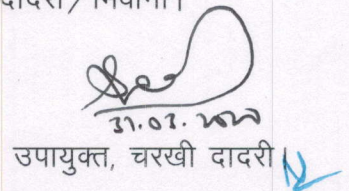 दादरी/भिवानी।
31.03.2020
उपायुक्त, चरखी दादरी।